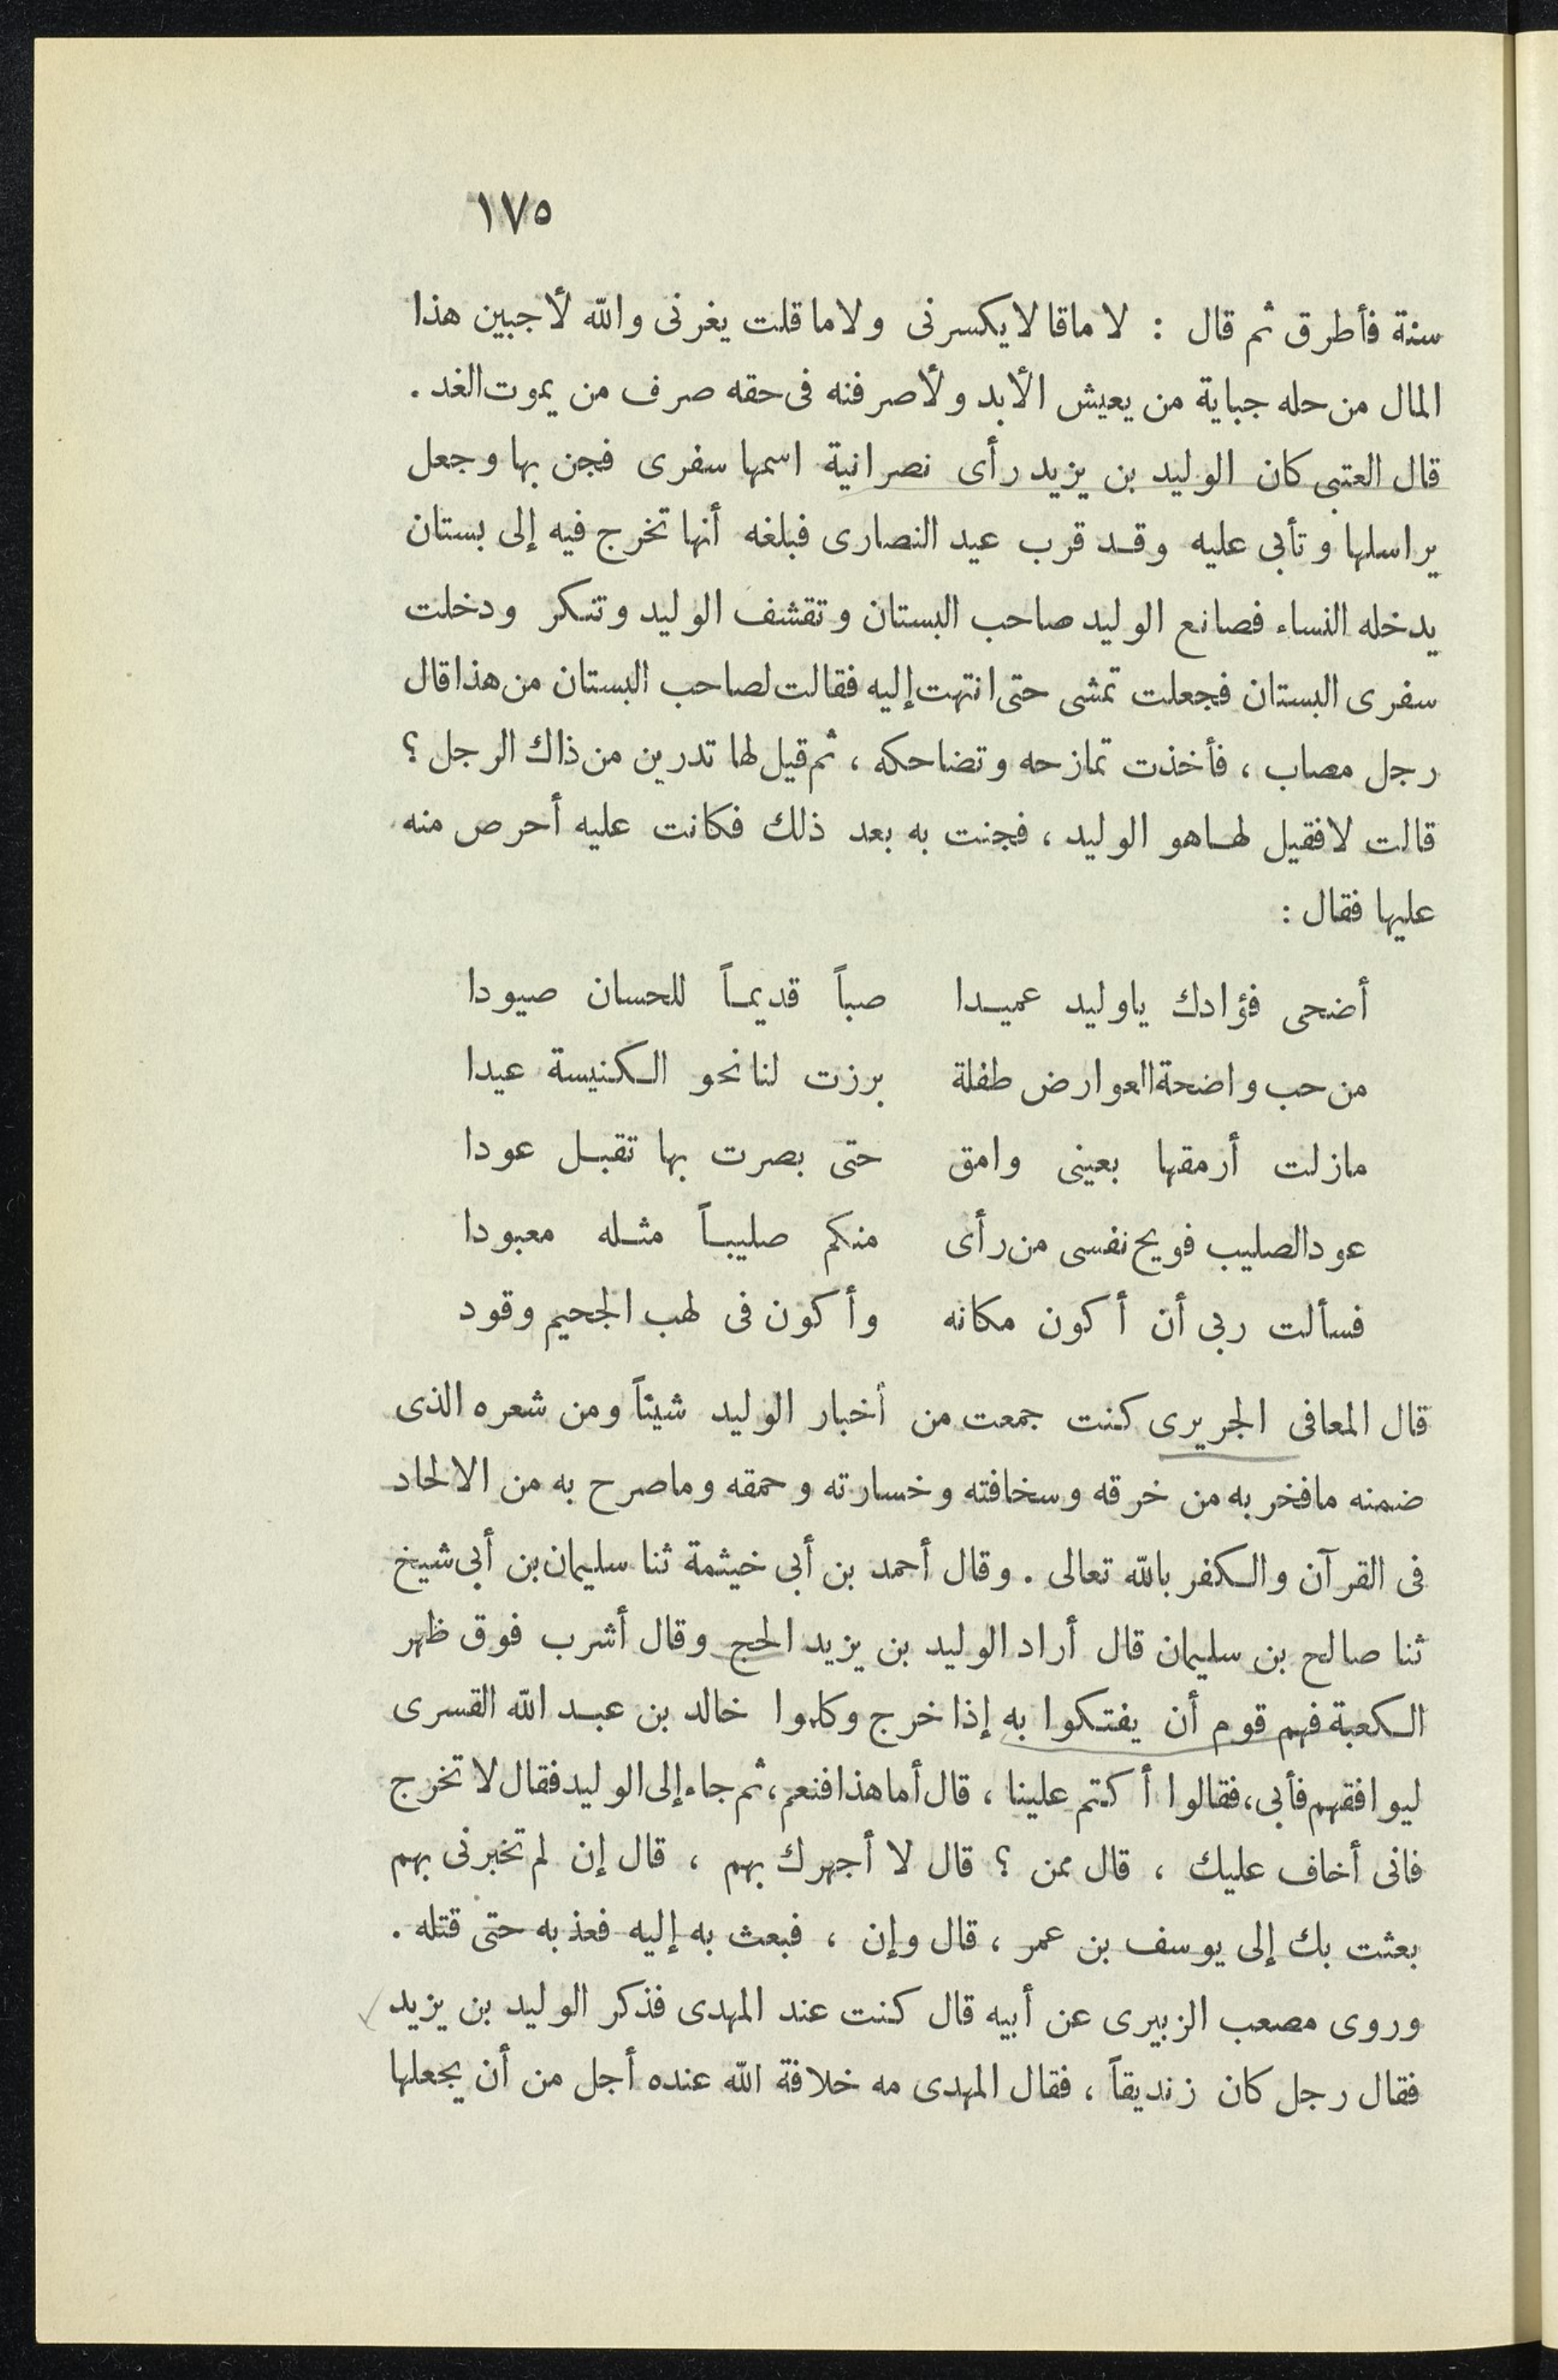 ١٧٥
سنة فأطرق ثم قال : لا ماقا لا يكسرنى ولا ما قلت يغرنى والله لأجبين هذا
المال من حله جباية من يعيش الأبد ولأصرفنه فى حقه صرف من يموت الغد .
قال العتبى كان الوليد بن يزيد رأى نصرانية اسمها سفرى فجن بها وجعل
يراسلها وتأبى عليه وقد قرب عيد النصارى فبلغه أنها تخرج فيه إلى بستان
يدخله النساء فصانع الوليد صاحب البستان وتقشف الوليد وتنكر ودخلت
سفرى البستان فجعلت تمشى حتى انتهت إليه فقالت لصاحب البستان من هذا قال
رجل مصاب ، فأخذت تمازحه وتضاحكه ، ثم قيل لها تدرين من ذاك الرجل ؟
قالت لا فقيل لها هو الوليد ، فجنت به بعد ذلك فكانت عليه أحرص منه
عليها فقال :
أضحى فؤادك ياوليد عميدا صباً قديماً للحسان صيودا
من حب واضحة العوارض طفلة برزت لنا نحو الكنيسة عيدا
مازلت أرمقها بعينى وامق حتى بصرت بها تقبل عودا
عود الصليب فويح نفسى من رأى منكم صليباً مثله معبودا
فسألت ربى أن أكون مكانه وأكون فى لهب الجحيم وقود
قال المعافى الجريرى كنت جمعت من أخبار الوليد شيئاً ومن شعره الذى
ضمنه مافخر به من خرقه وسخافته وخسارته وحمقه وماصرح به من الالحاد
فى القرآن والكفر بالله تعالى . وقال أحمد بن أبى خيثمة ثنا سليمان بن أبى شيخ
ثنا صالح بن سليمان قال أراد الوليد بن يزيد الحج وقال أشرب فوق ظهر
الكعبة فهم قوم أن يفتكوا به إذا خرج وكلموا خالد بن عبد الله القسرى
ليوافقهم فأبى ، فقالوا أكتم علينا ، قال أما هذا فنعم ، ثم جاء إلى الوليد فقال لا تخرج
فانى أخاف عليك ، قال ممن ؟ قال لا أجهرك بهم ، قال إن لم تخبرنى بهم
بعثت بك إلى يوسف بن عمر ، قال وإن ، فبعث به إليه فعذبه حتى قتله .
وروى مصعب الزبيرى عن أبيه قال كنت عند المهدى فذكر الوليد بن يزيد
فقال رجل كان زنديقاً ، فقال المهدى مه خلافة الله عنده أجل من أن يجعلها